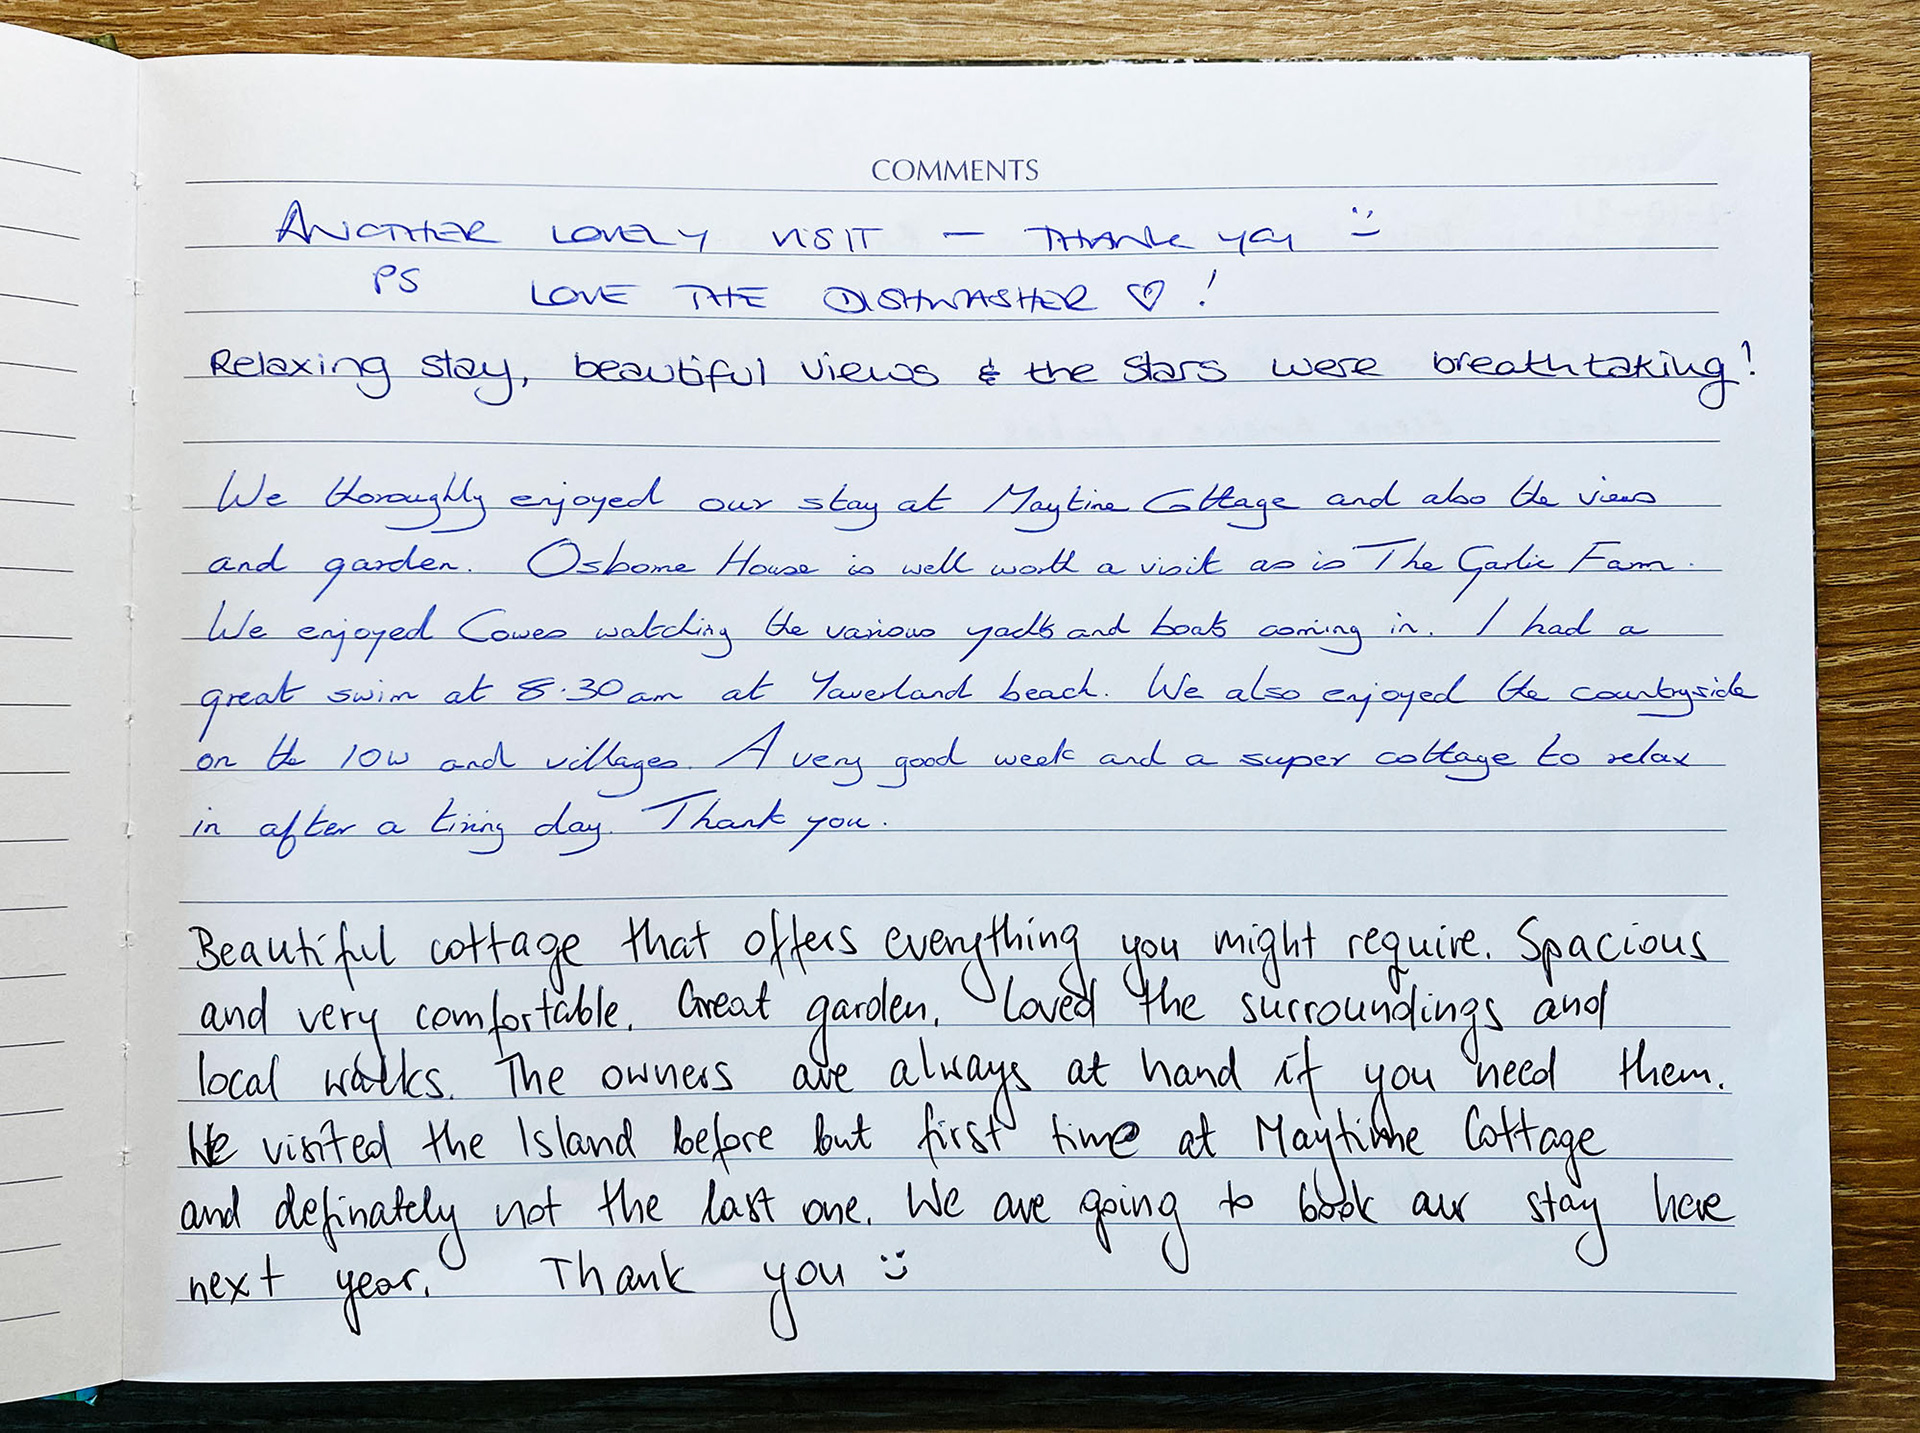 COMMENTS
ANOTHER LOVELY VISIT — THANK YOU :)
PS LOVE THE DISHWASHER ♡!
Relaxing stay, beautiful views & the stars were breathtaking!
We thoroughly enjoyed our stay at Maytime Cottage and also the views
and garden. Osborne House is well worth a visit as is The Garlic Farm.
We enjoyed Cowes watching the various yachts and boats coming in. I had a
great swim at 8.30am at Yaverland beach. We also enjoyed the countryside
on the IOW and villages. A very good week and a super cottage to relax
in after a tiring day. Thank you.
Beautiful cottage that offers everything you might require. Spacious
and very comfortable. Great garden. Loved the surroundings and
local walks. The owners are always at hand if you need them.
We visited the Island before but first time at Maytime Cottage
and definately not the last one. We are going to book our stay here
next year. Thank you :)